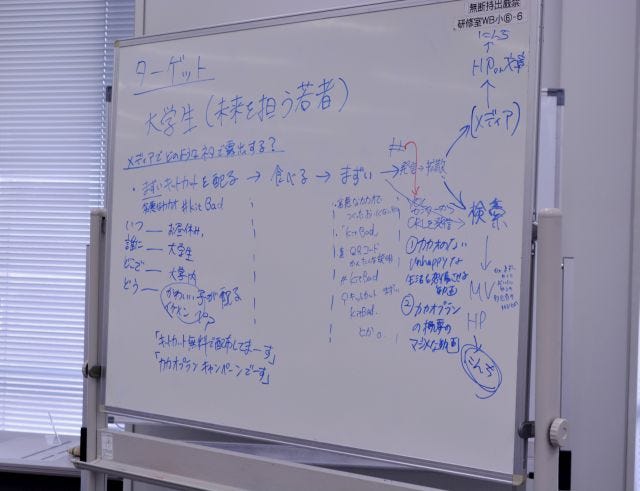 無断持出厳禁
研修室WB小⑥-6
ターゲット
大学生(未来を担う若者)
メディアでどのようなネタで露出する?
・まずいキットカットを配る → 食べる → まずい → 発信→拡散
#kit Bad
いつ — お昼休み,
誰に — 大学生
どこで — 大学内
どう — かわいい子が配る
イケメン
「キットカット無料で配布してまーす」
「カカオプランキャンペーンでーす」
「Kit Bad」
QRコード
#KitBad
キットカット まずい
KitBad
とか。
##
①カカオのない
unhappyな
生活を想像させる
動画
②カカオプラン
の概要の
マジメな動画
にんち
↑
HP
↑
(メディア)
検索
↓
MV
HP
↓
にんち